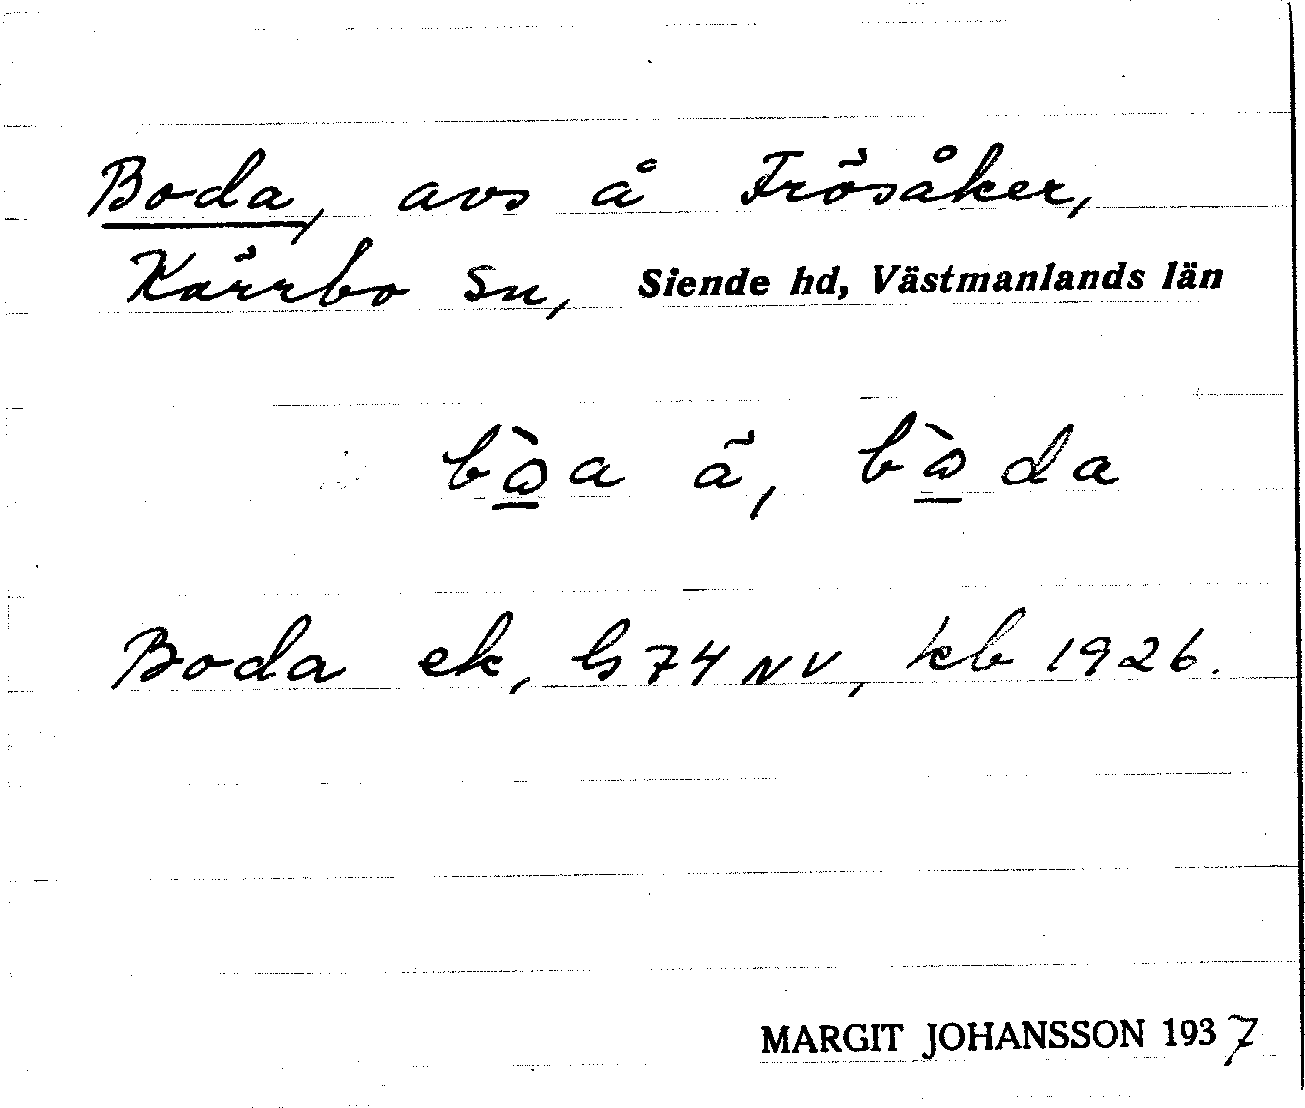 Boda, avs å Frösåker,
Kärrbo sn, Siende hd, Västmanlands län
bὼa ä, bὼda
Boda ek, G74NV, kb 1926.
MARGIT JOHANSSON 1937